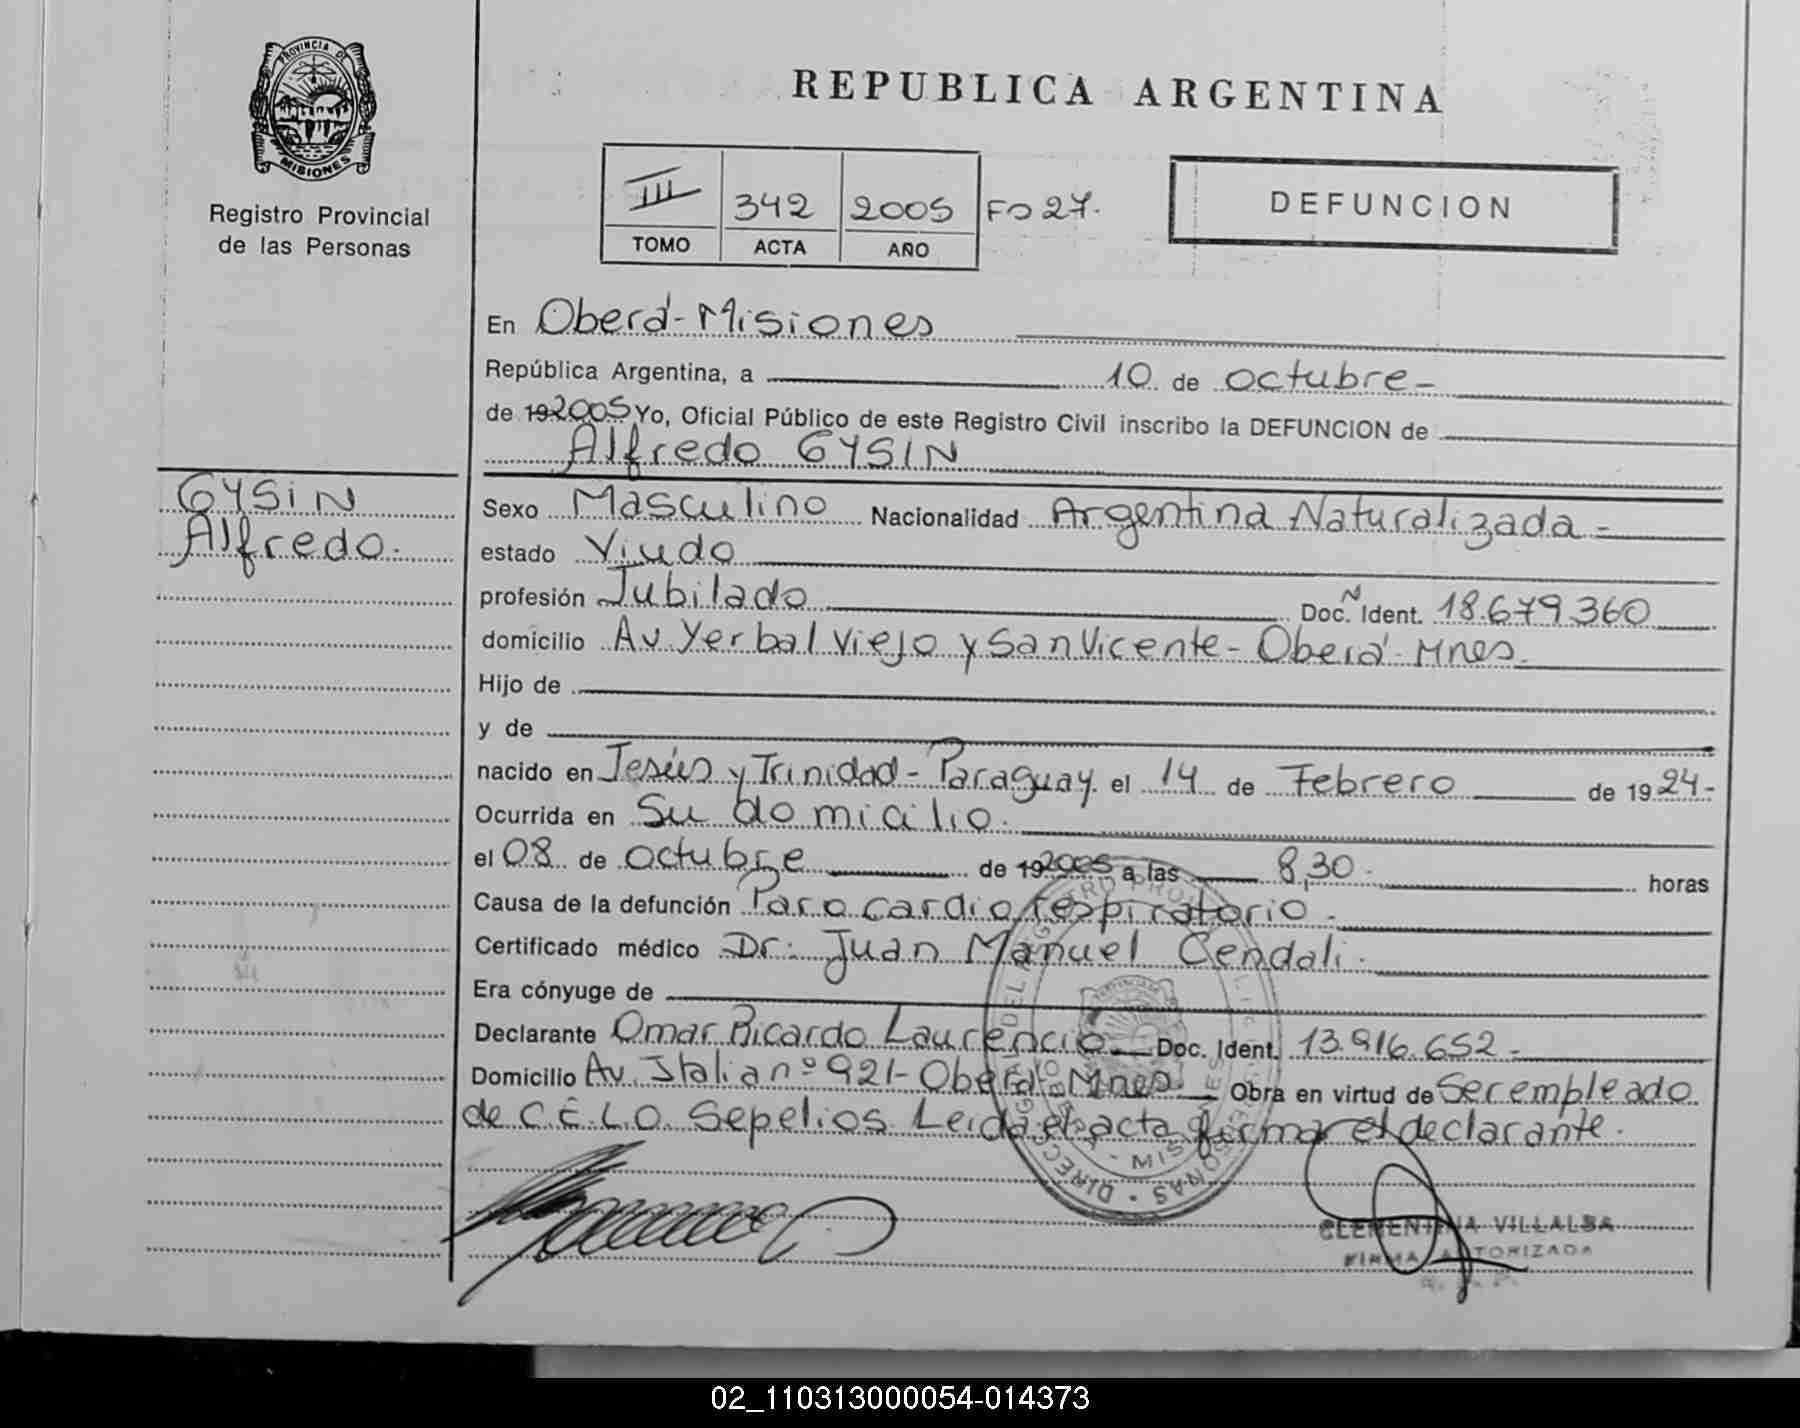 PROVINCIA DE
MISIONES
Registro Provincial
de las Personas
REPUBLICA ARGENTINA
III 342 2005 Fo 27.
TOMO ACTA AÑO
DEFUNCION
En Oberá - Misiones
República Argentina, a 10 de octubre -
de 192005 Yo, Oficial Público de este Registro Civil inscribo la DEFUNCION de
Alfredo GYSIN
GYSiN
Alfredo.
Sexo Masculino Nacionalidad Argentina Naturalizada -
estado Viudo
profesión Jubilado Doc. N Ident. 18.679.360
domicilio Av. Yerbal Viejo y San Vicente - Oberá - Mnes.
Hijo de
y de
nacido en Jesús y Trinidad - Paraguay. el 14 de Febrero de 1924-
Ocurrida en Su domicilio.
el 08 de octubre de 192005 a las 8,30 - horas
Causa de la defunción Paro cardio respiratorio -
Certificado médico Dr: Juan Manuel Cendali -
Era cónyuge de
Declarante Omar Ricardo Laurencio Doc. Ident. 13.916.652 -
Domicilio Av. Italia nº 921 - Oberá - Mnes. Obra en virtud de Ser empleado
de C.E.L.O. Sepelios. Leída el acta firma el declarante.
CLEMENTINA VILLALBA
FIRMA AUTORIZADA
02_110313000054-014373